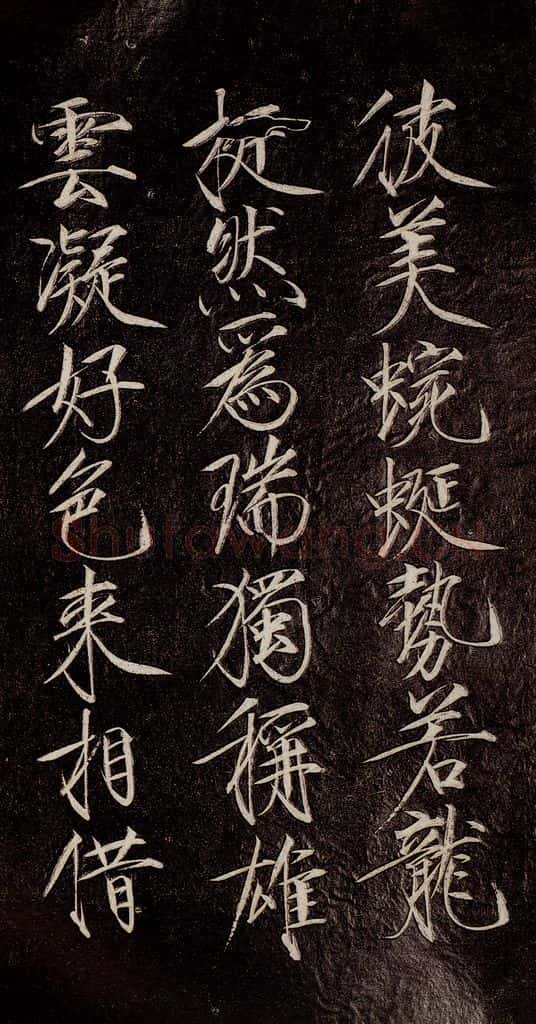 彼美蜿蜒勢若龍
挺然爲瑞獨稱雄
雲凝好色来相借